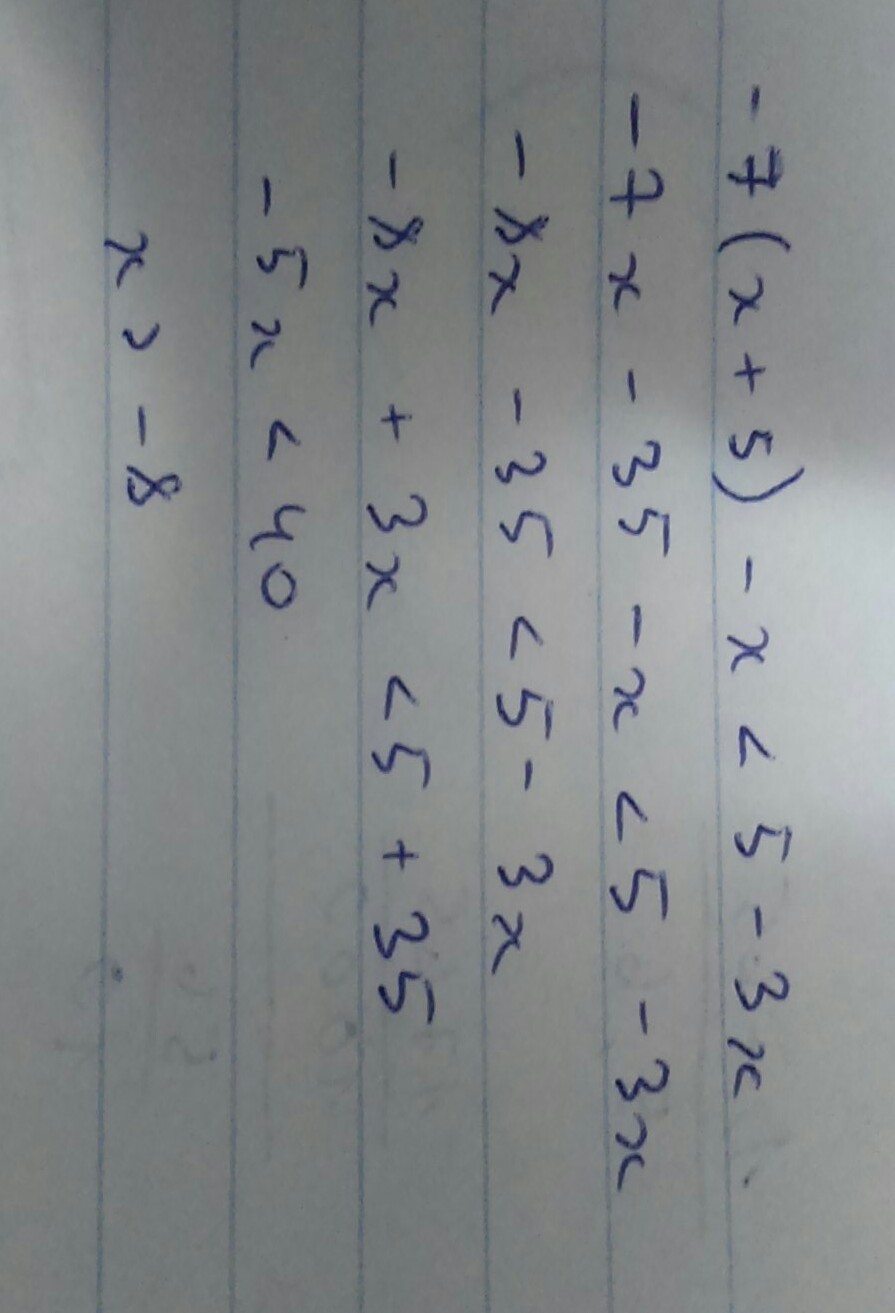 -7(x+5)-x<5-3x
-7x-35-x<5-3x
-8x-35<5-3x
-8x+3x<5+35
-5x<40
x>-8